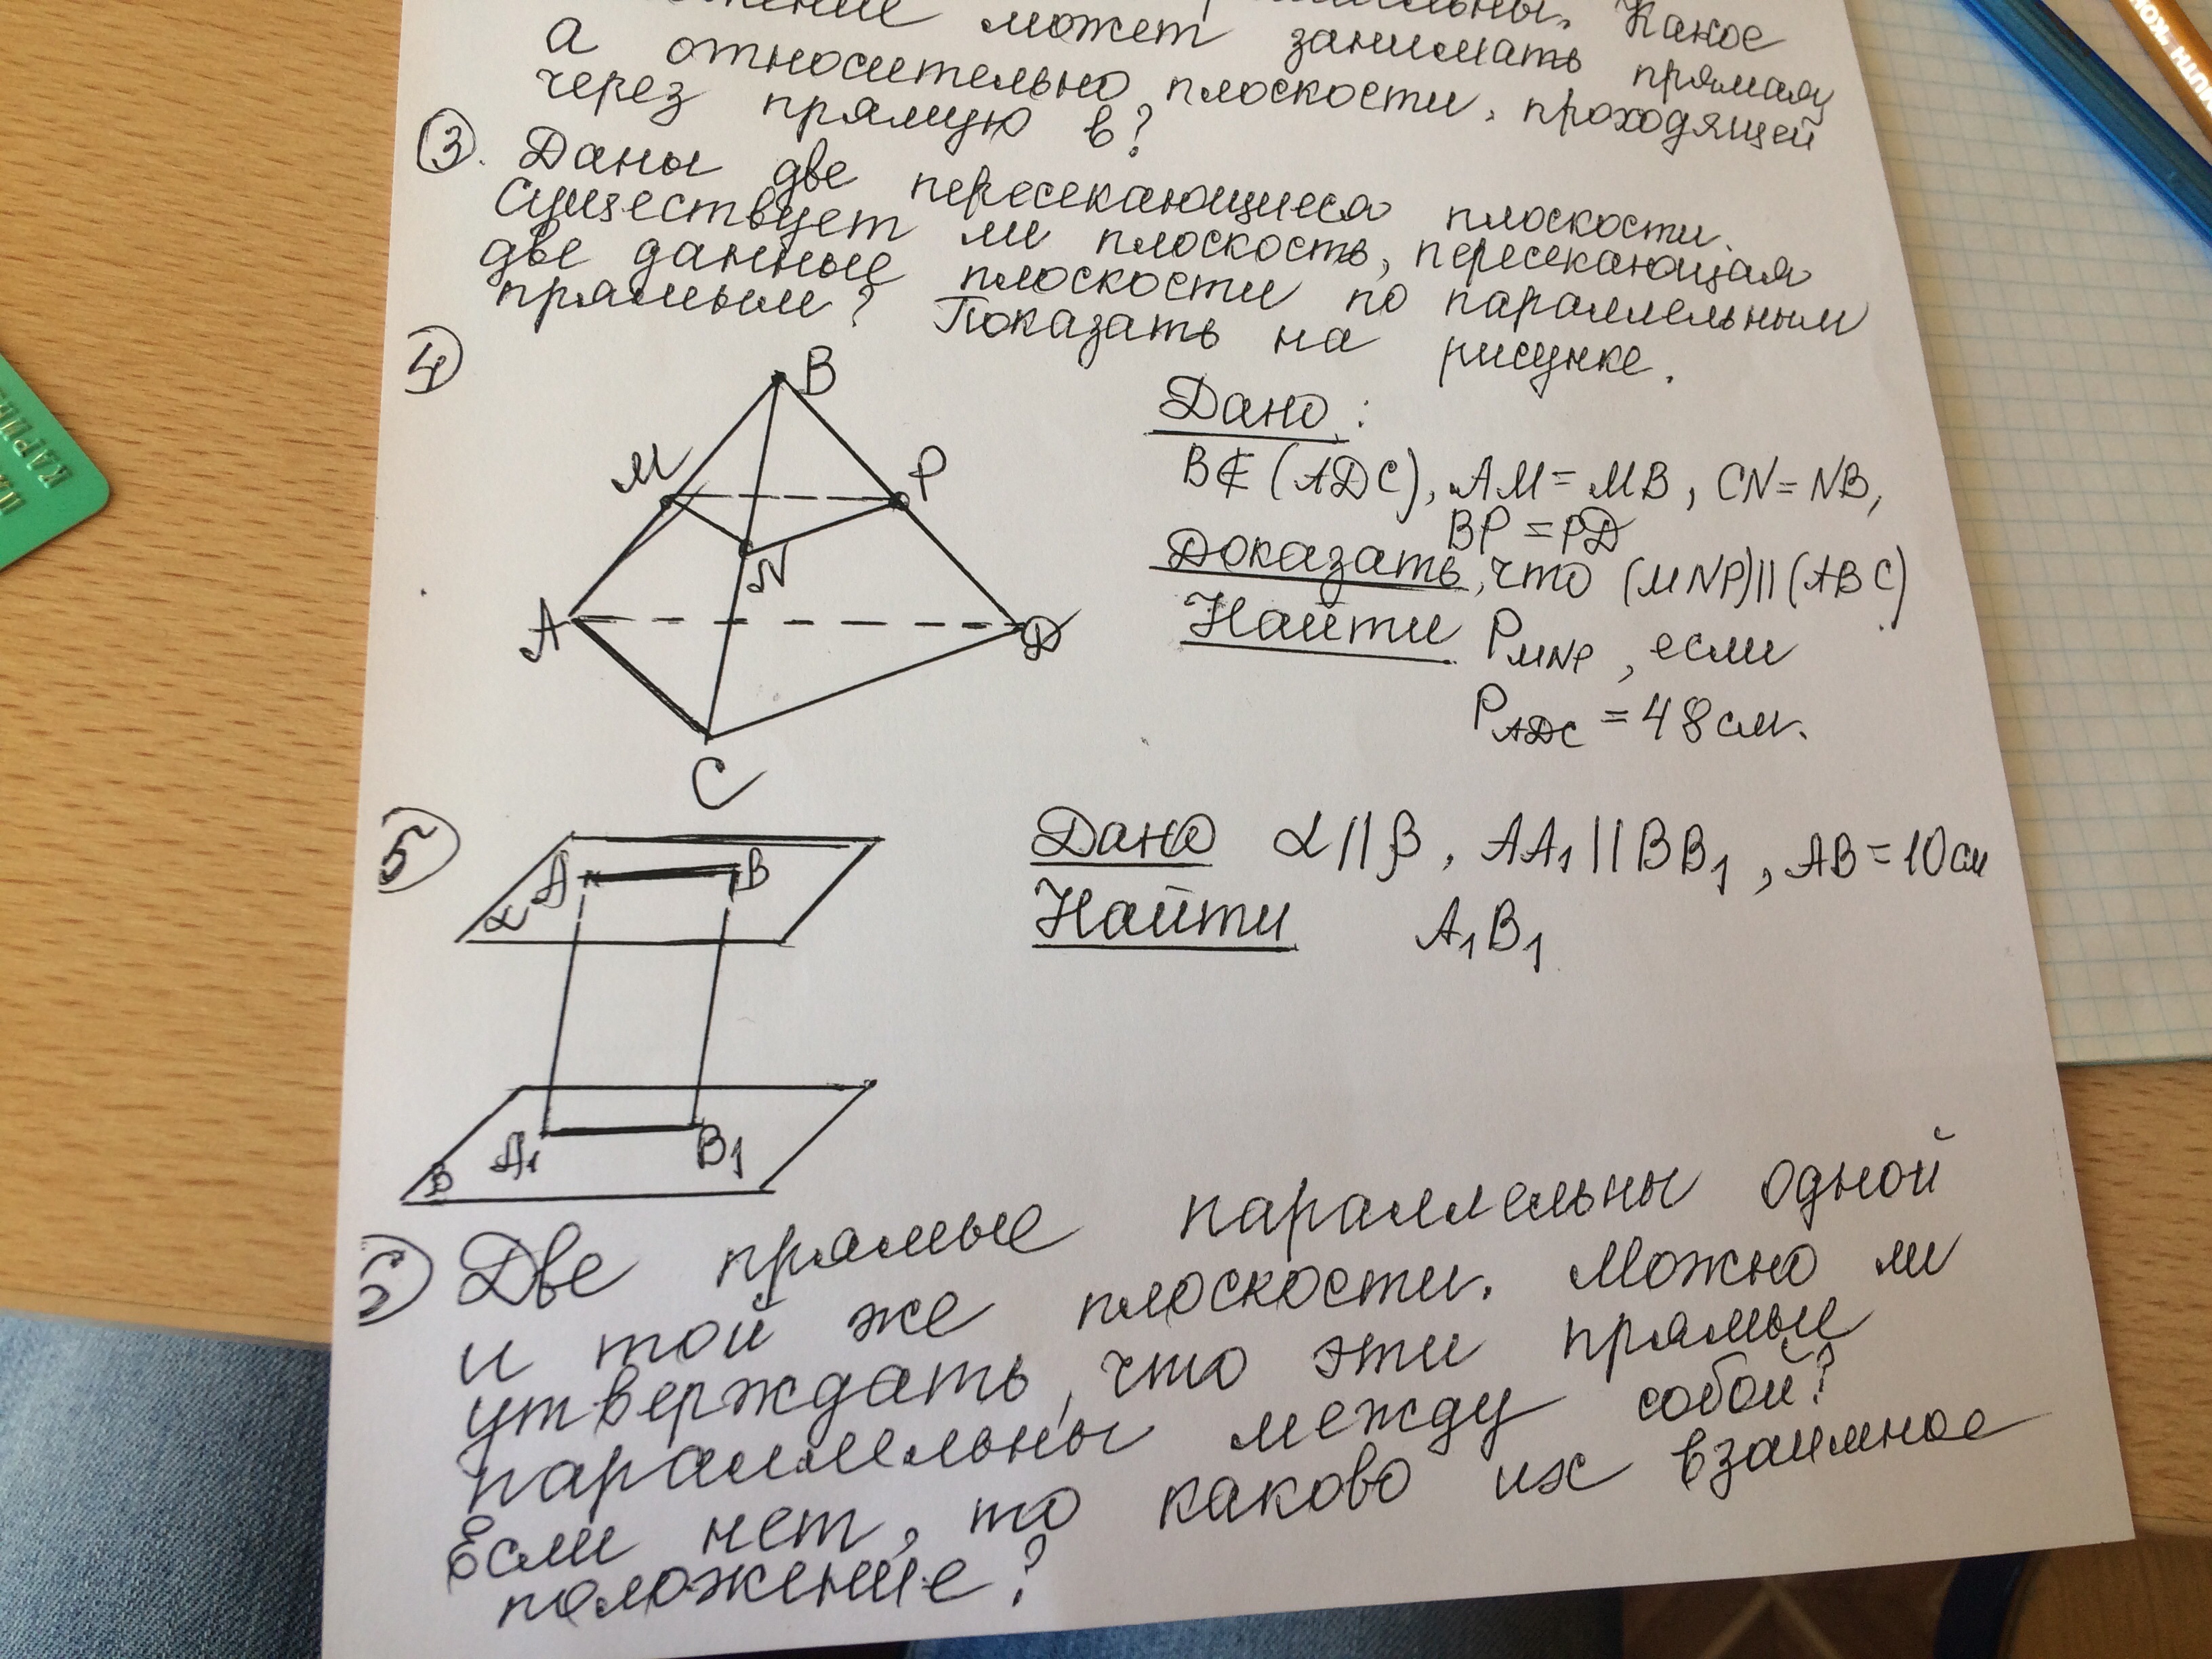 может занимать прямая
Какое
а относительно плоскости, проходящей
через прямую в?
3. Даны две пересекающиеся плоскости.
Существует ли плоскость, пересекающая
две данные плоскости по параллельным
прямым? Показать на рисунке.
4
B
M
P
N
A
D
C
Дано:
B∉(ADC), AM=MB, CN=NB,
BP=PD
Доказать, что (MNP)||(ABC)
Найти P MNP, если
P ADC = 48см.
5
A
B
α
A1
B1
β
Дано α||β, AA1||BB1, AB=10см
Найти A1B1
Две прямые параллельны одной
и той же плоскости. Можно ли
утверждать, что эти прямые
параллельны между собой?
Если нет, то каково их взаимное
положение?